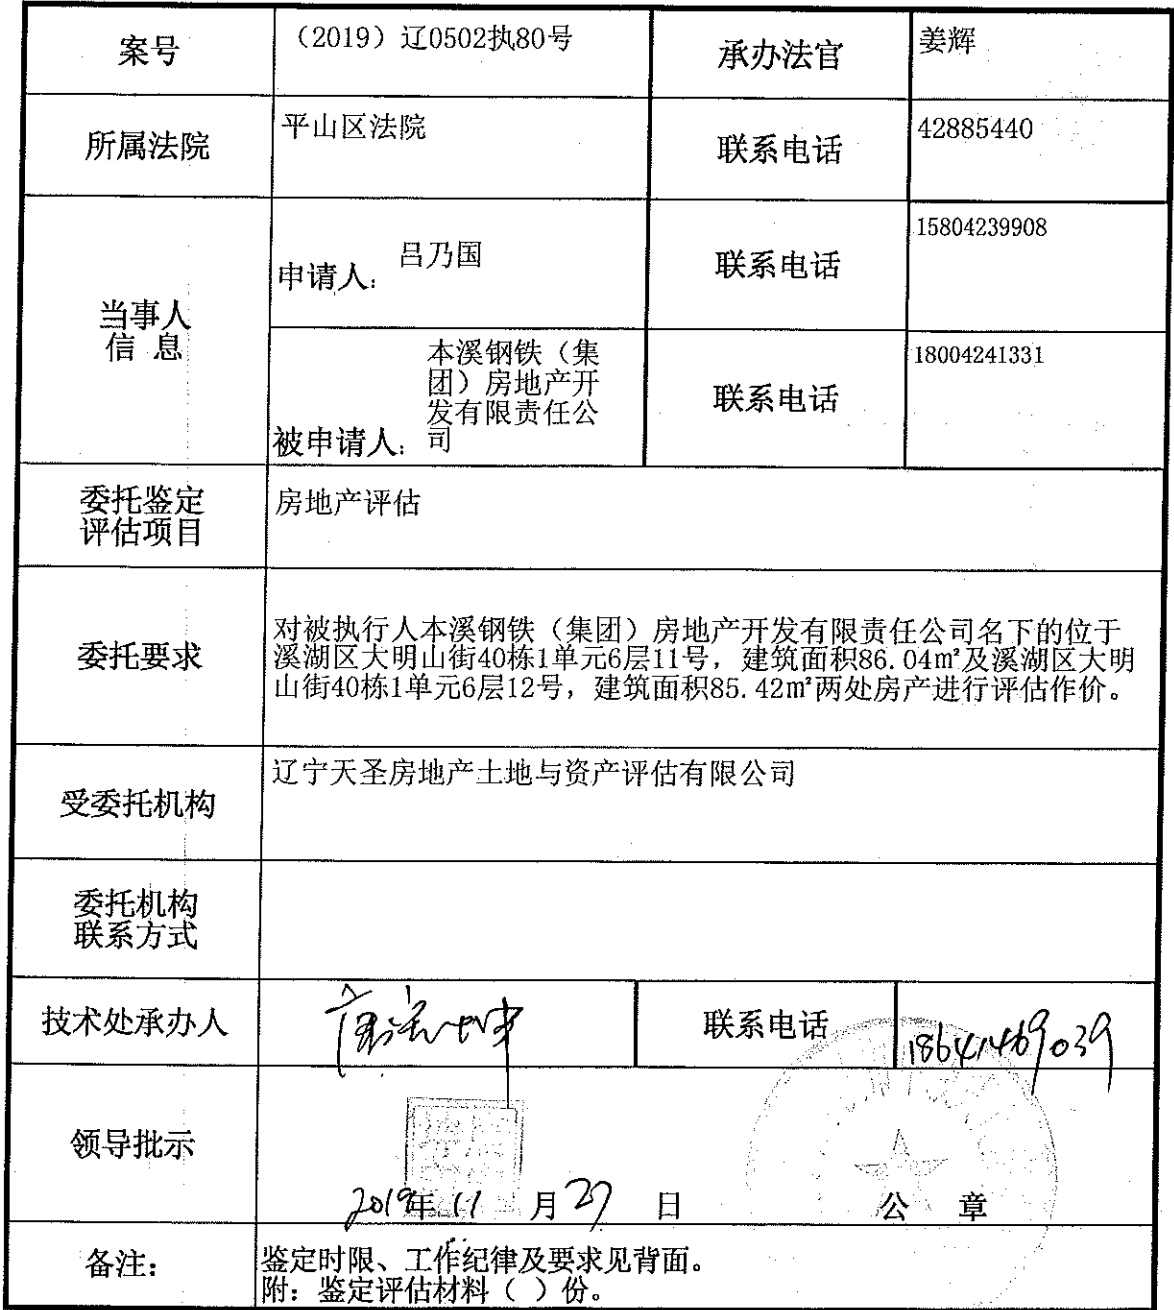 案号
（2019）辽0502执80号
承办法官
姜辉
所属法院
平山区法院
联系电话
42885440
当事人
信 息
申请人：
吕乃国
联系电话
15804239908
被申请人：
本溪钢铁（集
团）房地产开
发有限责任公
司
联系电话
18004241331
委托鉴定
评估项目
房地产评估
委托要求
对被执行人本溪钢铁（集团）房地产开发有限责任公司名下的位于
溪湖区大明山街40栋1单元6层11号，建筑面积86.04㎡及溪湖区大明
山街40栋1单元6层12号，建筑面积85.42㎡两处房产进行评估作价。
受委托机构
辽宁天圣房地产土地与资产评估有限公司
委托机构
联系方式
技术处承办人
联系电话
18641469039
领导批示
2019年 11 月 27 日
公 章
备注：
鉴定时限、工作纪律及要求见背面。
附：鉴定评估材料（ ）份。